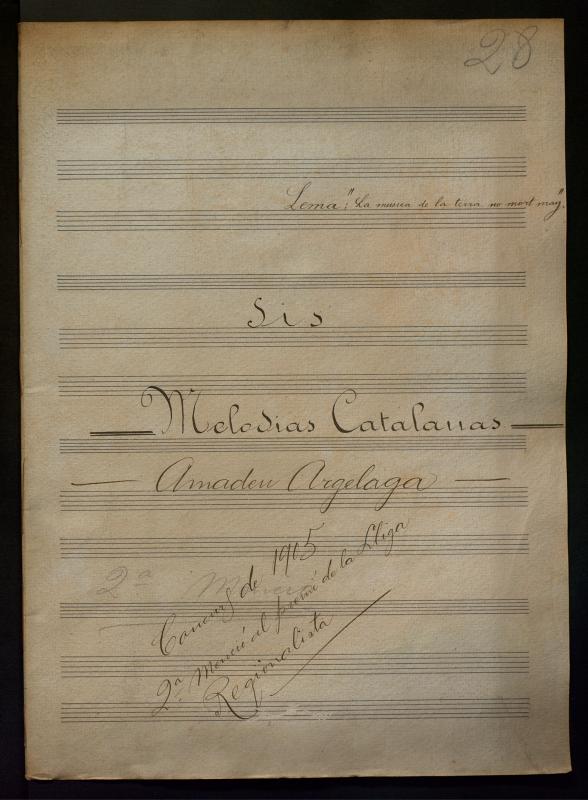 28
Lema": La musica de la terra no mort may".
Sis
Melodias Catalanas
Amadeu Argelaga
2ª Menció
Concurs de 1905
2ª Menció al premi de la Lliga
Regionalista